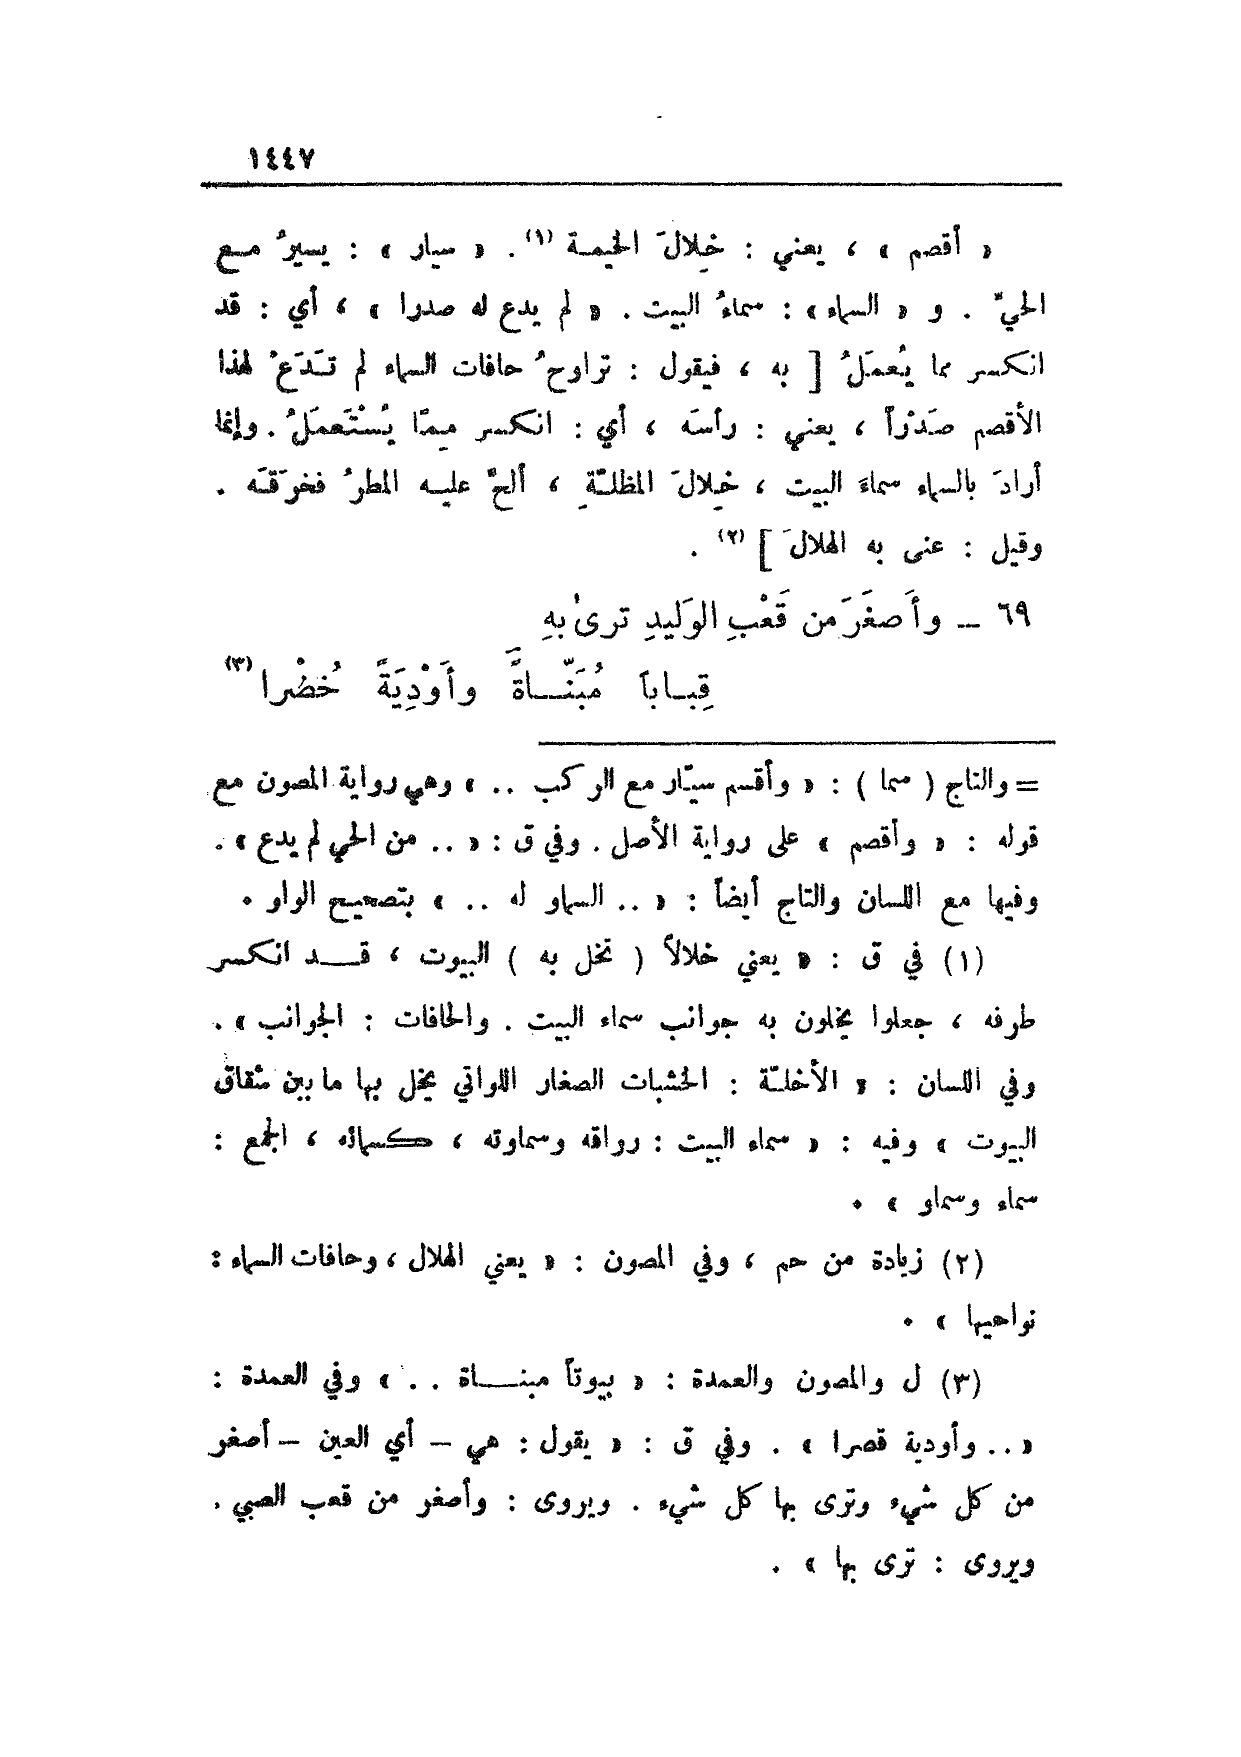 ١٤٤٧
« أقصم » ، يعني : خِلالَ الخيمة (١) . « سيار » : يسيرُ مع
الحيّ . و « السماء » : سماءُ البيت . « لم يدع له صدرا » ، أي : قد
انكسر مما يُعمَلُ [ به ، فيقول : تراوحُ حافات السماء لم تَدَعْ لهذا
الأقصم صَدْراً ، يعني : رأسَه ، أي : انكسر مِمّا يُسْتَعمَلُ . وإنما
أرادَ بالسماء سماءَ البيت ، خِلالَ المظلّةِ ، ألحَّ عليه المطرُ فخرَقَه .
وقيل : عنى به الهلالَ ] (٢) .
٦٩ – وأَصغَرَ من قَعْبِ الوَليدِ ترىٰ بهِ
قِباباً مُبَنّاةً وأَوْدِيَةً خُضْرا (٣)
= والتاج ( سما ) : « وأقسم سيّار مع الركب .. » وهي رواية المصون مع
قوله : « وأقصم » على رواية الأصل . وفي ق : « .. من الحي لم يدع » .
وفيها مع اللسان والتاج أيضاً : « .. السماو له .. » بتصحيح الواو .
(١) في ق : « يعني خلالاً ( تخل به ) البيوت ، قد انكسر
طرفه ، جعلوا يخلون به جوانب سماء البيت . والحافات : الجوانب » .
وفي اللسان : « الأخلّة : الخشبات الصغار اللواتي يخل بها ما بين شقاق
البيوت » وفيه : « سماء البيت : رواقه وسماوته ، كسمائه ، الجمع :
سماء وسماو » .
(٢) زيادة من حم ، وفي المصون : « يعني الهلال ، وحافات السماء :
نواحيها » .
(٣) ل والمصون والعمدة : « بيوتاً مبناة .. » وفي العمدة :
« .. وأودية قصرا » . وفي ق : « يقول : هي – أي العين – أصغر
من كل شيء وترى بها كل شيء . ويروى : وأصغر من قعب الصبي .
ويروى : ترى بها » .